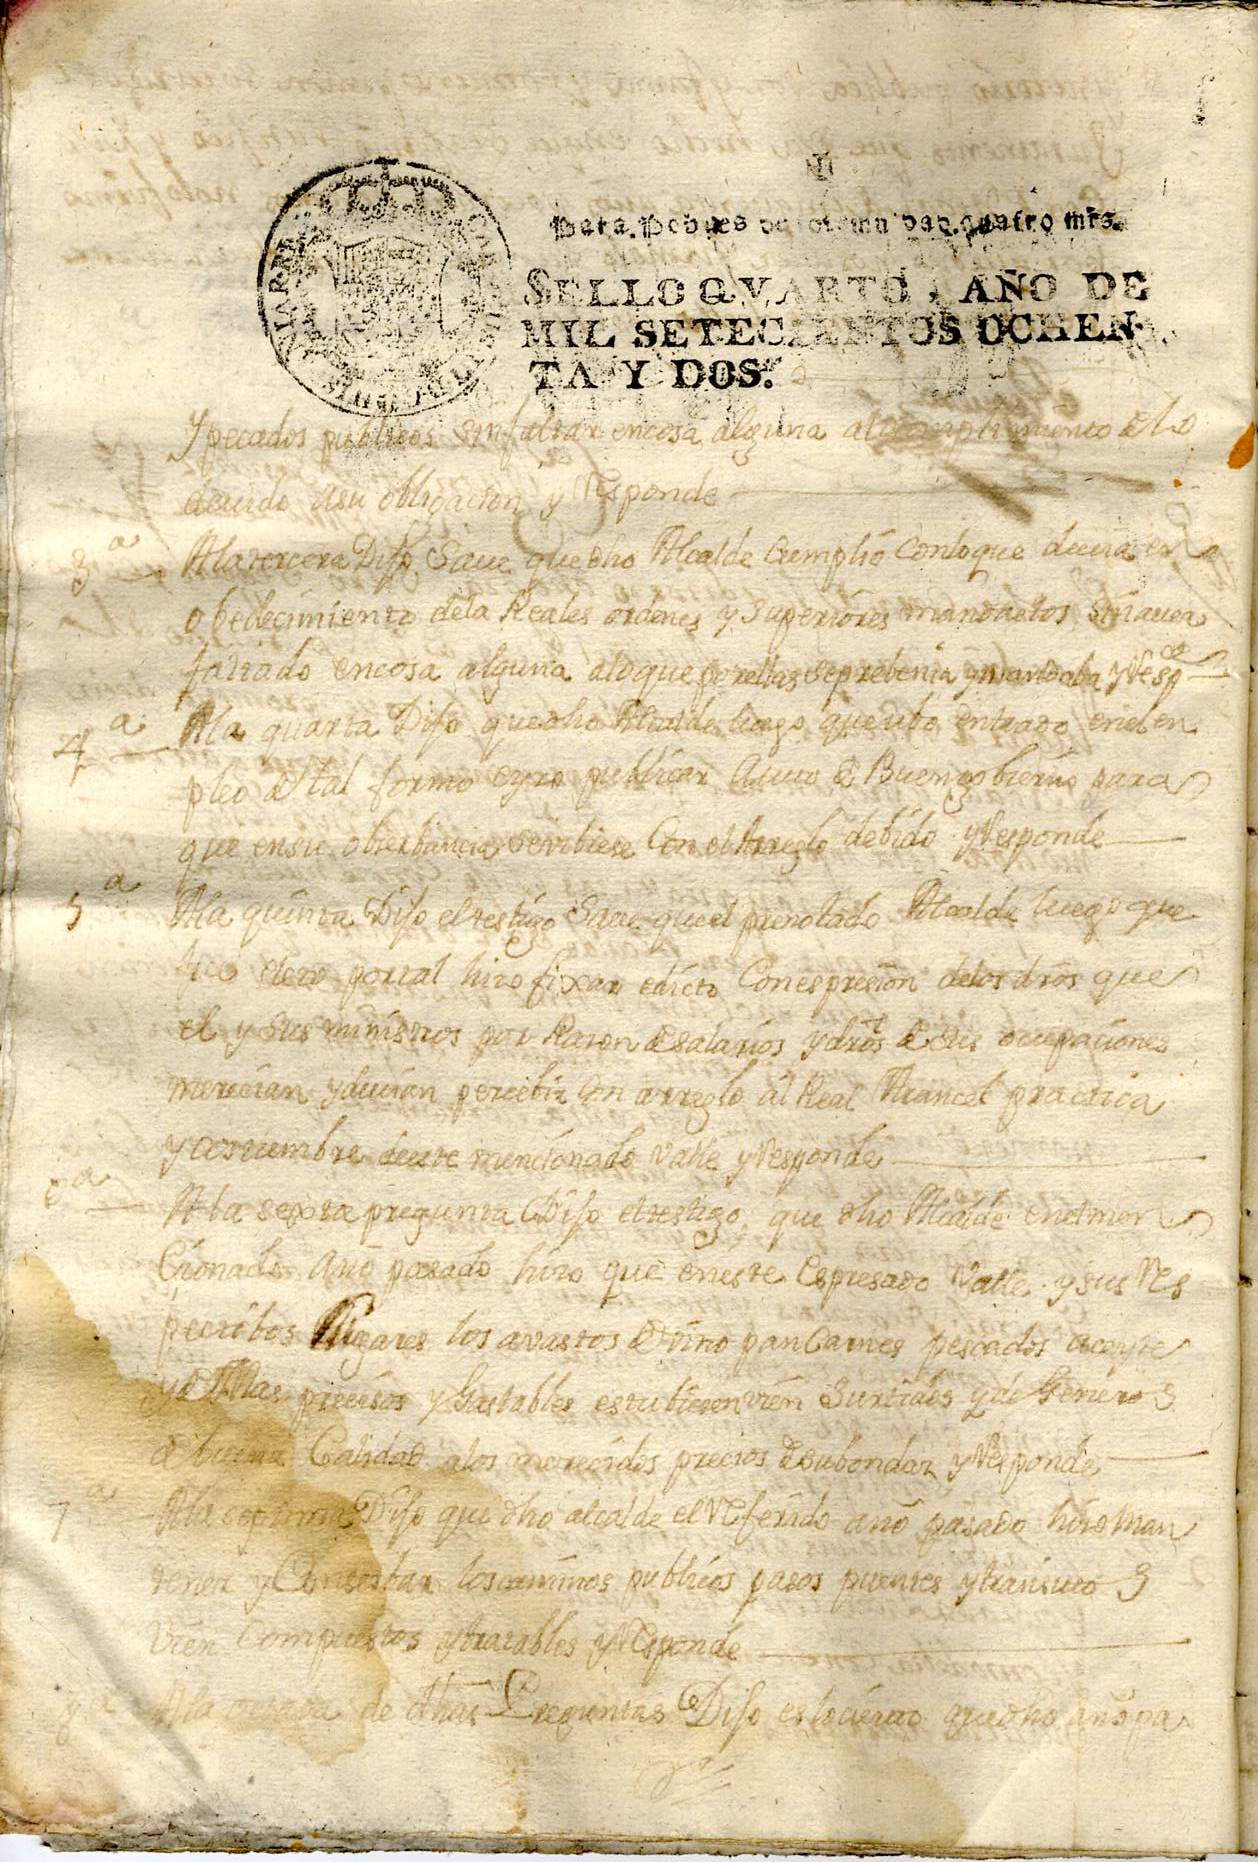 Para. Pobres de solemnidad. quatro mrs.
SELLO QVARTO, AÑO DE
MIL SETECIENTOS OCHEN-
TA Y DOS.
Y pecados publicos sinfaltar encosa alguna al cumplimiento de lo
deuido asu obligacion y Responde
3ª Ala tercera Dijo Saue que dho Alcalde Cumplió Conloque deuia en
obedecimiento dela Reales ordenes y Superiores mandactos sinauer
faltado encosa alguna aloque porellas seprebenia ymandaba y Respde
4ª Ala quarta Dijo quedho Alcalde luego que ubo entrado enel en
pleo de tal formo eyzo publicar Auto de Buengobierno para
que ensu obserbancia sevibiese Con el Arreglo debido y Responde
5ª Ala quinta Dijo eltestigo Saue que el prenotado Alcalde luego que
fue electo portal hizo fixar edicto Conespresion delos dros que
el y sus ministros por Razon de salarios y dros de sus ocupaciones
merecian y deuian percebir Con arreglo al Real Arancel practica
y costumbre deeste mencionado Valle y Responde
6ª Ala sexta pregunta Dijo eltestigo, que dho Alcalde enelmen
Cionado Año pasado hizo que eneste Espresado Valle y sus Res
pectibos Lugares los avastos de vino pan Carnes pescados aceyte
y demas precisos y Gastables estubiesen vien Surtidos y de Generos
de buena Calidad alos merecidos precios desubondar y Responde
7ª Ala septima Dijo que dho alcalde el Referido año pasado hizo man
tener y Conserbar loscaminos publicos pasos puentes y transitos
vien Compuestos ytratables y Responde
8ª Ala octaua de dhas Preguntas Dijo es lo cierto quedho año pa